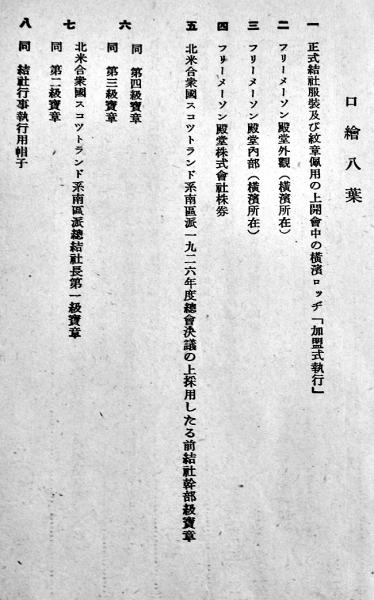 口繪八葉
一 正式結社服裝及び紋章佩用の上開會中の橫濱ロッヂ「加盟式執行」
二 フリーメーソン殿堂外觀(橫濱所在)
三 フリーメーソン殿堂內部(橫濱所在)
四 フリーメーソン殿堂株式會社株券
五 北米合衆國スコツトランド系南區派一九二六年度總會決議の上採用したる前結社幹部級寶章
六 同 第四級寶章
同 第三級寶章
七 北米合衆國スコツトランド系南區派總結社長第一級寶章
同 第二級寶章
八 同 結社行事執行用帽子